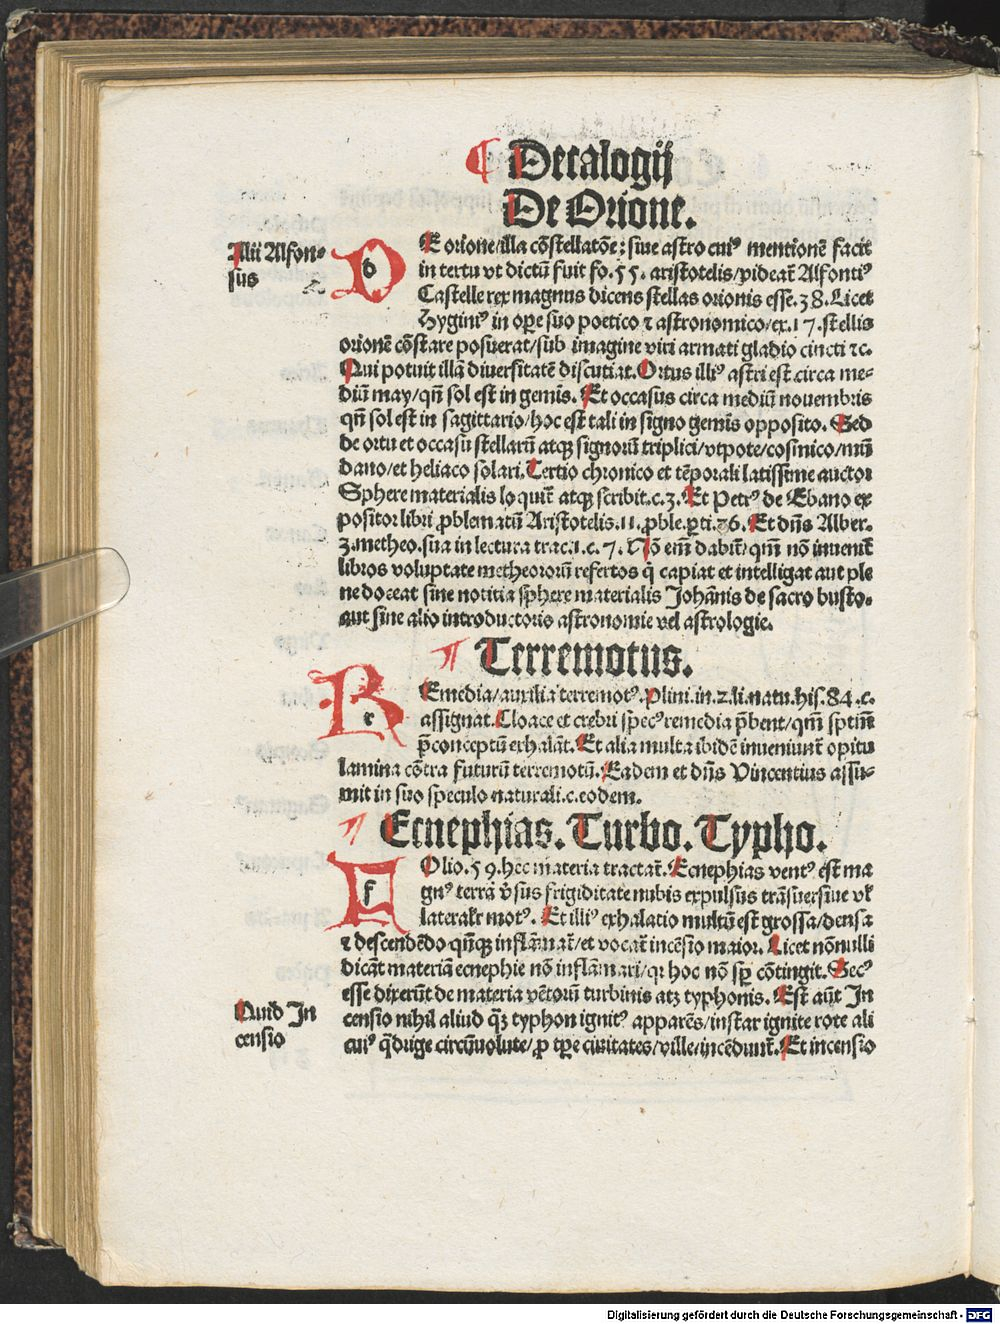 Decalogij
De Orione.
Alij Alfon-
sus
dE orione/illa cõstellatõe: siue astro cuiꝰ mentionē facit
in textu vt dictū fuit fo.55. aristotelis/videat᷑ Alfontiꝰ
Castelle rex magnus dicens stellas orionis esse.38. Licet
Hyginiꝰ in oꝑe suo poetico ⁊ astronomico/ex.17.stellis
orionē cõstare posuerat/sub imagine viri armati gladio cincti ⁊c.
Qui potuit illā diuersitatē discutiat. Ortus illiꝰ astri est circa me-
diū may/qn̄ sol est in gemis. Et occasus circa mediū nouembris
qn̄ sol est in sagittario/hoc est tali in signo gemis opposito. Sed
de ortu et occasu stellarū atqꝫ signorū triplici/vtpote/cosmico/mū
dano/et heliaco solari. Tertio chronico et tēporali latissime auctor
Sphere materialis loquit᷑ atqꝫ scribit.c.3. Et Petrꝰ de Ebano ex
positor libri ꝓblematū Aristotelis.11.ꝓble.ꝑti.26. Et dn̄s Alber.
3.metheo.sua in lectura trac.1.c.7. Nō em̄ dabit᷑/qm̄ nō inuenit᷑
libros voluptate metheororū refertos q̇ capiat et intelligat aut ple
ne doceat sine notitia sphere materialis Johānis de sacro busto.
aut sine alio introductoris astronomie vel astrologie.
Terremotus.
rEmedia/auxilia terremotꝰ. Plini.in.2.li.natu.his.84.c.
assignat. Cloace et crebri specꝰ remedia p̄bent/qm̄ sptim̄
p̄conceptū exhalāt. Et alia multa ibidē inueniunt᷑ opitu
lamina cõtra futurū terremotū. Eadem et dn̄s Vincentius assu-
mit in suo speculo naturali.c.eodem.
Ecnephias. Turbo. Typho.
fOlio.59.hec materia tractat᷑. Ecnephias ventꝰ est ma
gnꝰ terrā v̓sus frigiditate nubis expulsus trāsuersiue vl̓
lateralr̓ motꝰ. Et illiꝰ exhalatio multū est grossa/densa
⁊ descendēdo qn̄qꝫ inflāmat᷑/et vocat᷑ incēsio maior. Licet nōnulli
dicāt materiā ecnephie nō inflāmari/qꝛ hoc nō sꝑ cõtingit. Secꝰ
esse dixerūt de materia vētorū turbinis atqꝫ typhonis. Est aūt In
Quid In
censio
censio nihil aliud qꝫ̄ typhon ignitꝰ apparēs/instar ignite rote ali
cuiꝰ q̄drige circūuolute/ꝓ tꝑe ciuitates/ville/incēdunt᷑. Et incensio
Digitalisierung gefördert durch die Deutsche Forschungsgemeinschaft - DFG